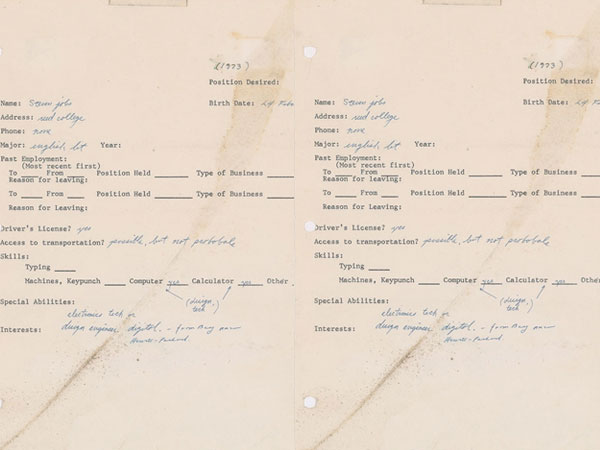 (1973)
Position Desired:
Name: Steven jobs Birth Date:
Address: reed college
Phone: none
Major: english lit Year:
Past Employment:
(Most recent first)
To ____ From ____ Position Held ______ Type of Business ______
Reason for leaving:
To ____ From ____ Position Held ______ Type of Business ______
Reason for Leaving:
Driver's License? yes
Access to transportation? possible, but not probable
Skills:
Typing ____
Machines, Keypunch ____ Computer yes Calculator yes Other
(design, tech)
Special Abilities:
electronics tech or
Interests: design engineer. digital. — from Bay near
Hewitt-Packard
(1973)
Position Desired:
Name: Steven jobs Birth Date:
Address: reed college
Phone: none
Major: english lit Year:
Past Employment:
(Most recent first)
To ____ From ____ Position Held ______ Type of Business ______
Reason for leaving:
To ____ From ____ Position Held ______ Type of Business ______
Reason for Leaving:
Driver's License? yes
Access to transportation? possible, but not probable
Skills:
Typing ____
Machines, Keypunch ____ Computer yes Calculator yes Other
(design, tech)
Special Abilities:
electronics tech or
Interests: design engineer. digital. — from Bay near
Hewitt-Packard